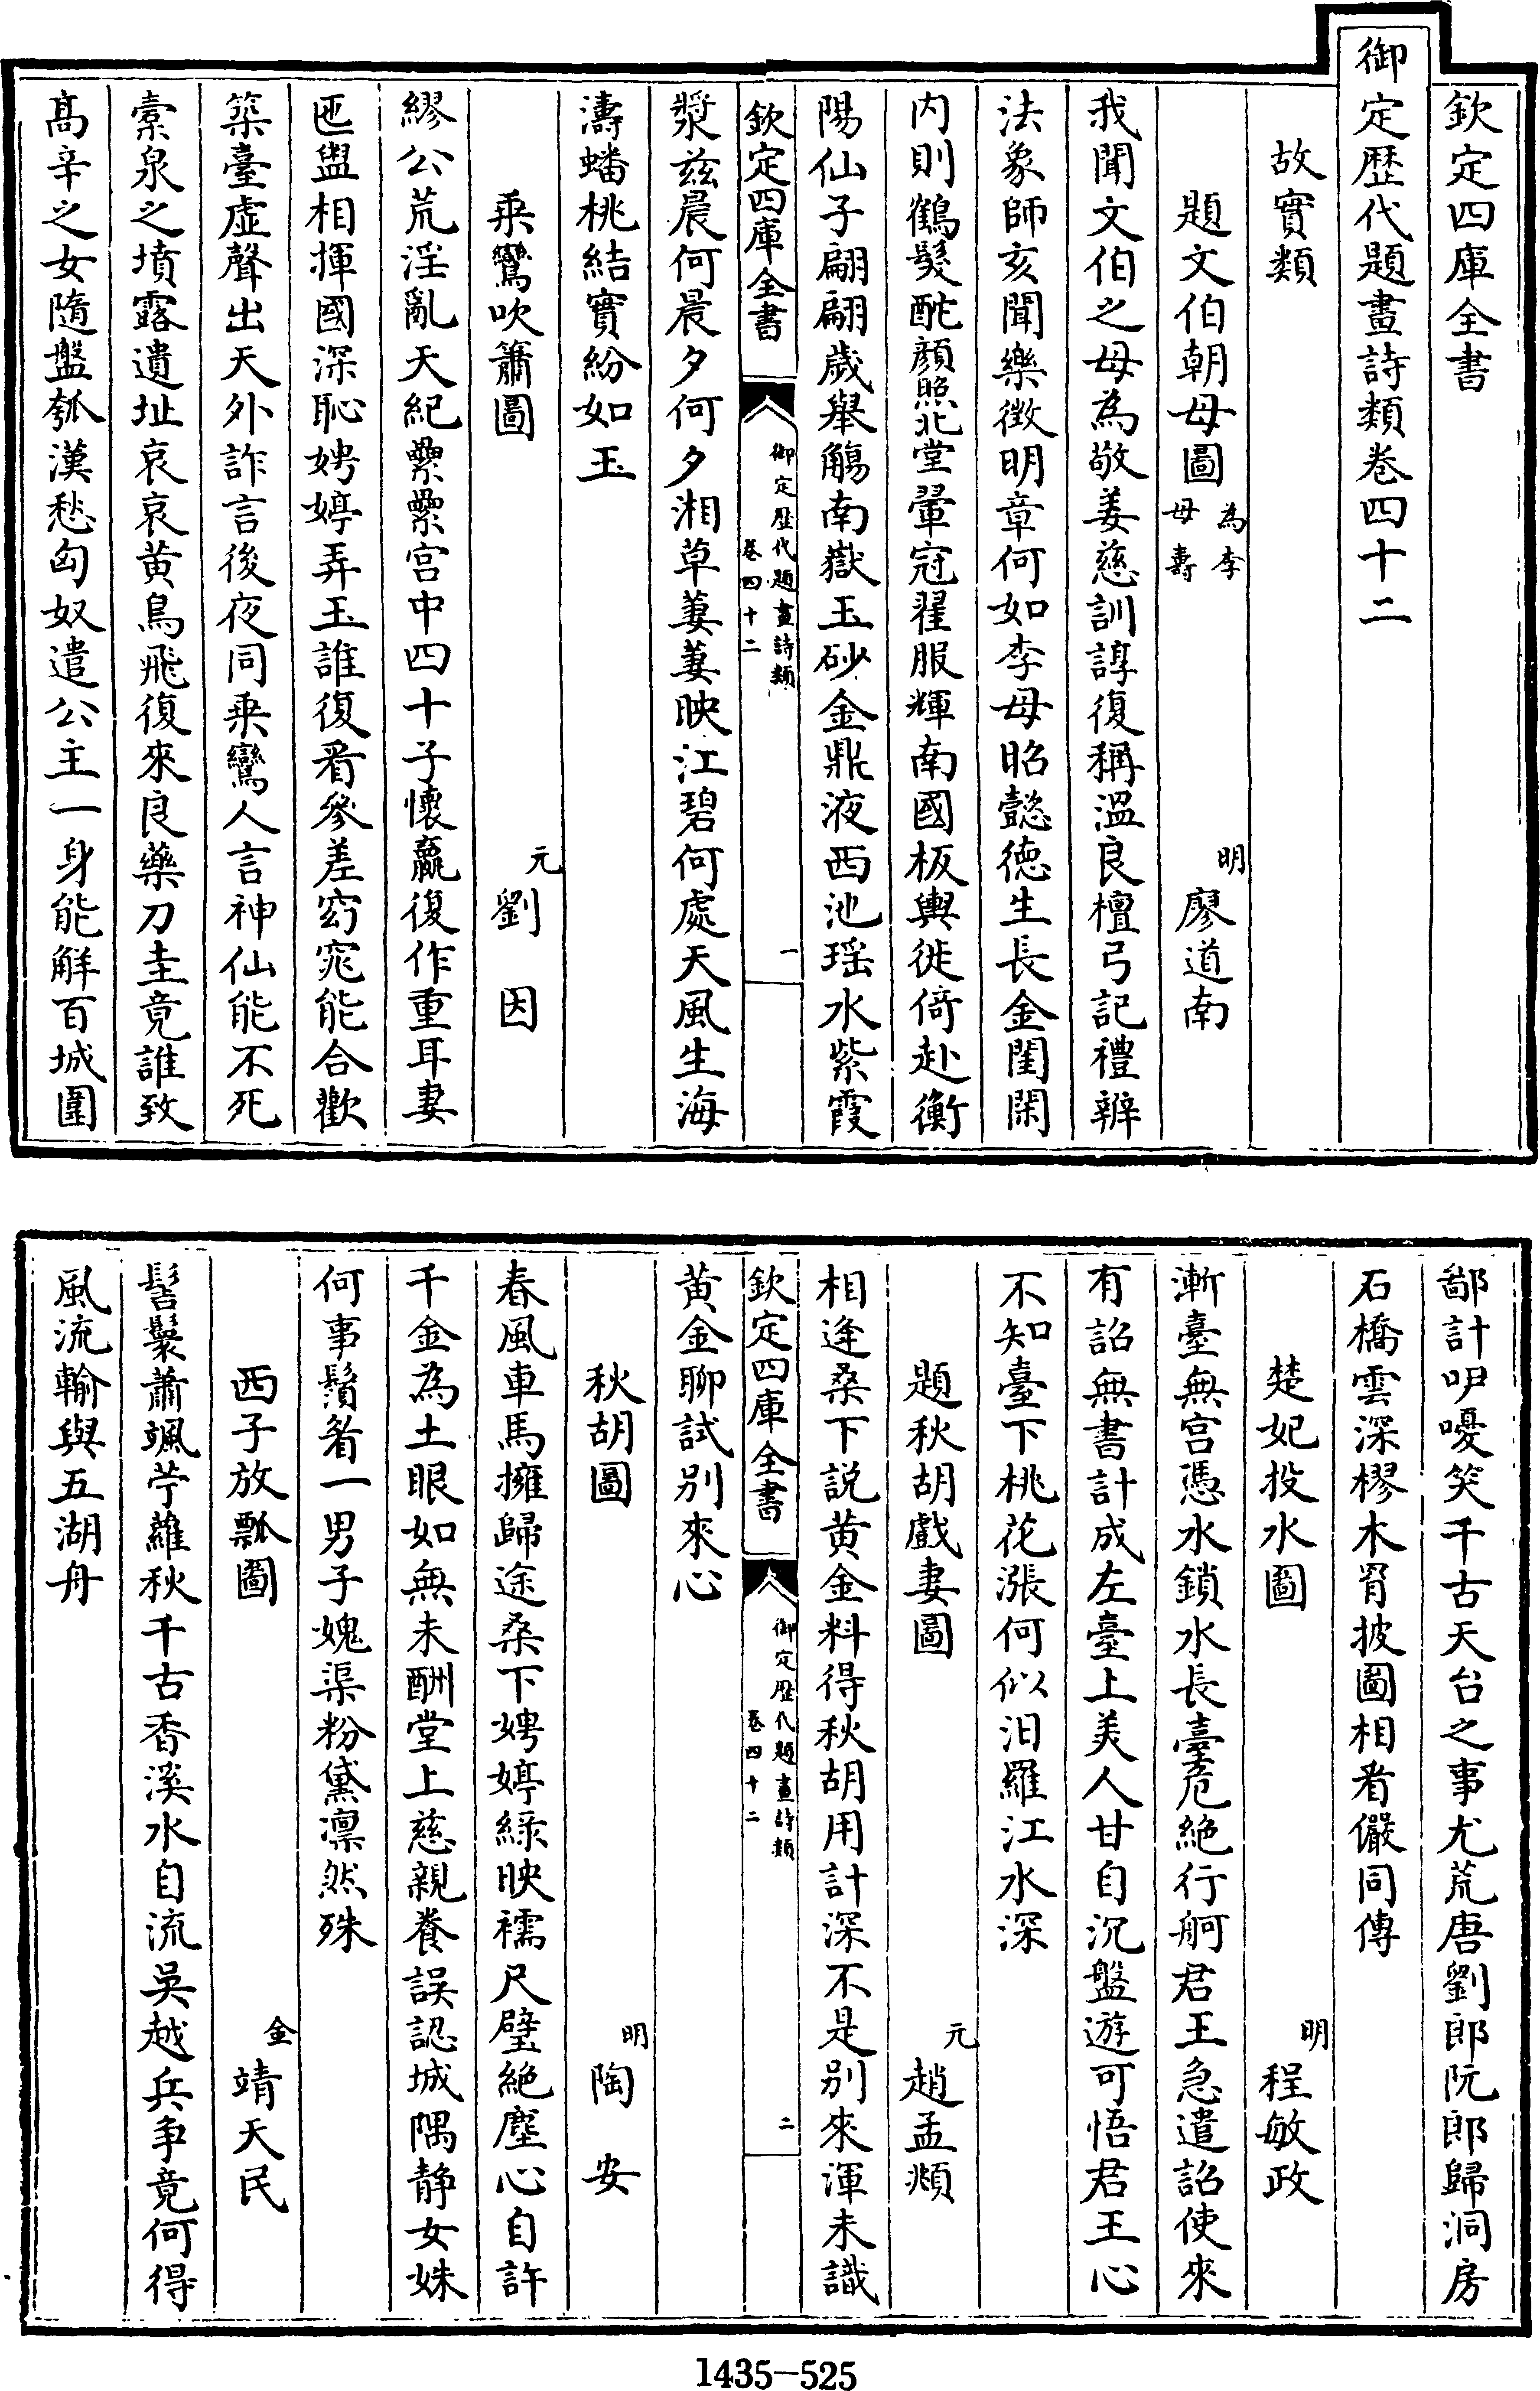 欽定四庫全書
御定歴代題畫詩類卷四十二
故實類
題文伯朝母圖為李母壽 明廖道南
我聞文伯之母為敬姜慈訓諄復稱溫良檀弓記禮辨
法象師亥聞樂徴明章何如李母昭懿徳生長金閨閑
内則鶴髮酡顔照北堂翬冠翟服輝南國板輿徙倚赴衡
陽仙子翩翩歲舉觴南嶽玉砂金鼎液西池瑶水紫霞
漿兹晨何晨夕何夕湘草萋萋映江碧何處天風生海
濤蟠桃結實紛如玉
乘鸞吹簫圖 元劉因
繆公荒淫亂天紀纍纍宫中四十子懷嬴復作重耳妻
匜盥相揮國深恥娉婷弄玉誰復看參差窈窕能合歡
築臺虛聲出天外詐言後夜同乘鸞人言神仙能不死
橐泉之墳露遺址哀哀黄鳥飛復來良藥刀圭竟誰致
髙辛之女隨盤瓠漢愁匈奴遣公主一身能解百城圍
欽定四庫全書 御定歴代題畫詩類 卷四十二 一
鄙計吚嚘笑千古天台之事尤荒唐劉郎阮郎歸洞房
石橋雲深樛木罥披圖相看儼同傳
楚妃投水圖 明程敏政
漸臺無宫憑水鎖水長臺危絶行舸君王急遣詔使來
有詔無書計成左臺上美人甘自沉盤遊可悟君王心
不知臺下桃花漲何似汨羅江水深
題秋胡戲妻圖 元趙孟頫
相逢桑下説黄金料得秋胡用計深不是别來渾未識
黄金聊試别來心
秋胡圖 明陶安
春風車馬擁歸途桑下娉婷緑映襦尺璧絶塵心自許
千金為土眼如無未酬堂上慈親養誤認城隅静女姝
何事鬚眉一男子媿渠粉黛凛然殊
西子放瓢圖 金靖天民
髻鬟蕭颯苧蘿秋千古香溪水自流吳越兵爭竟何得
風流輸與五湖舟
欽定四庫全書 御定歴代題畫詩類 卷四十二 二
1435-525